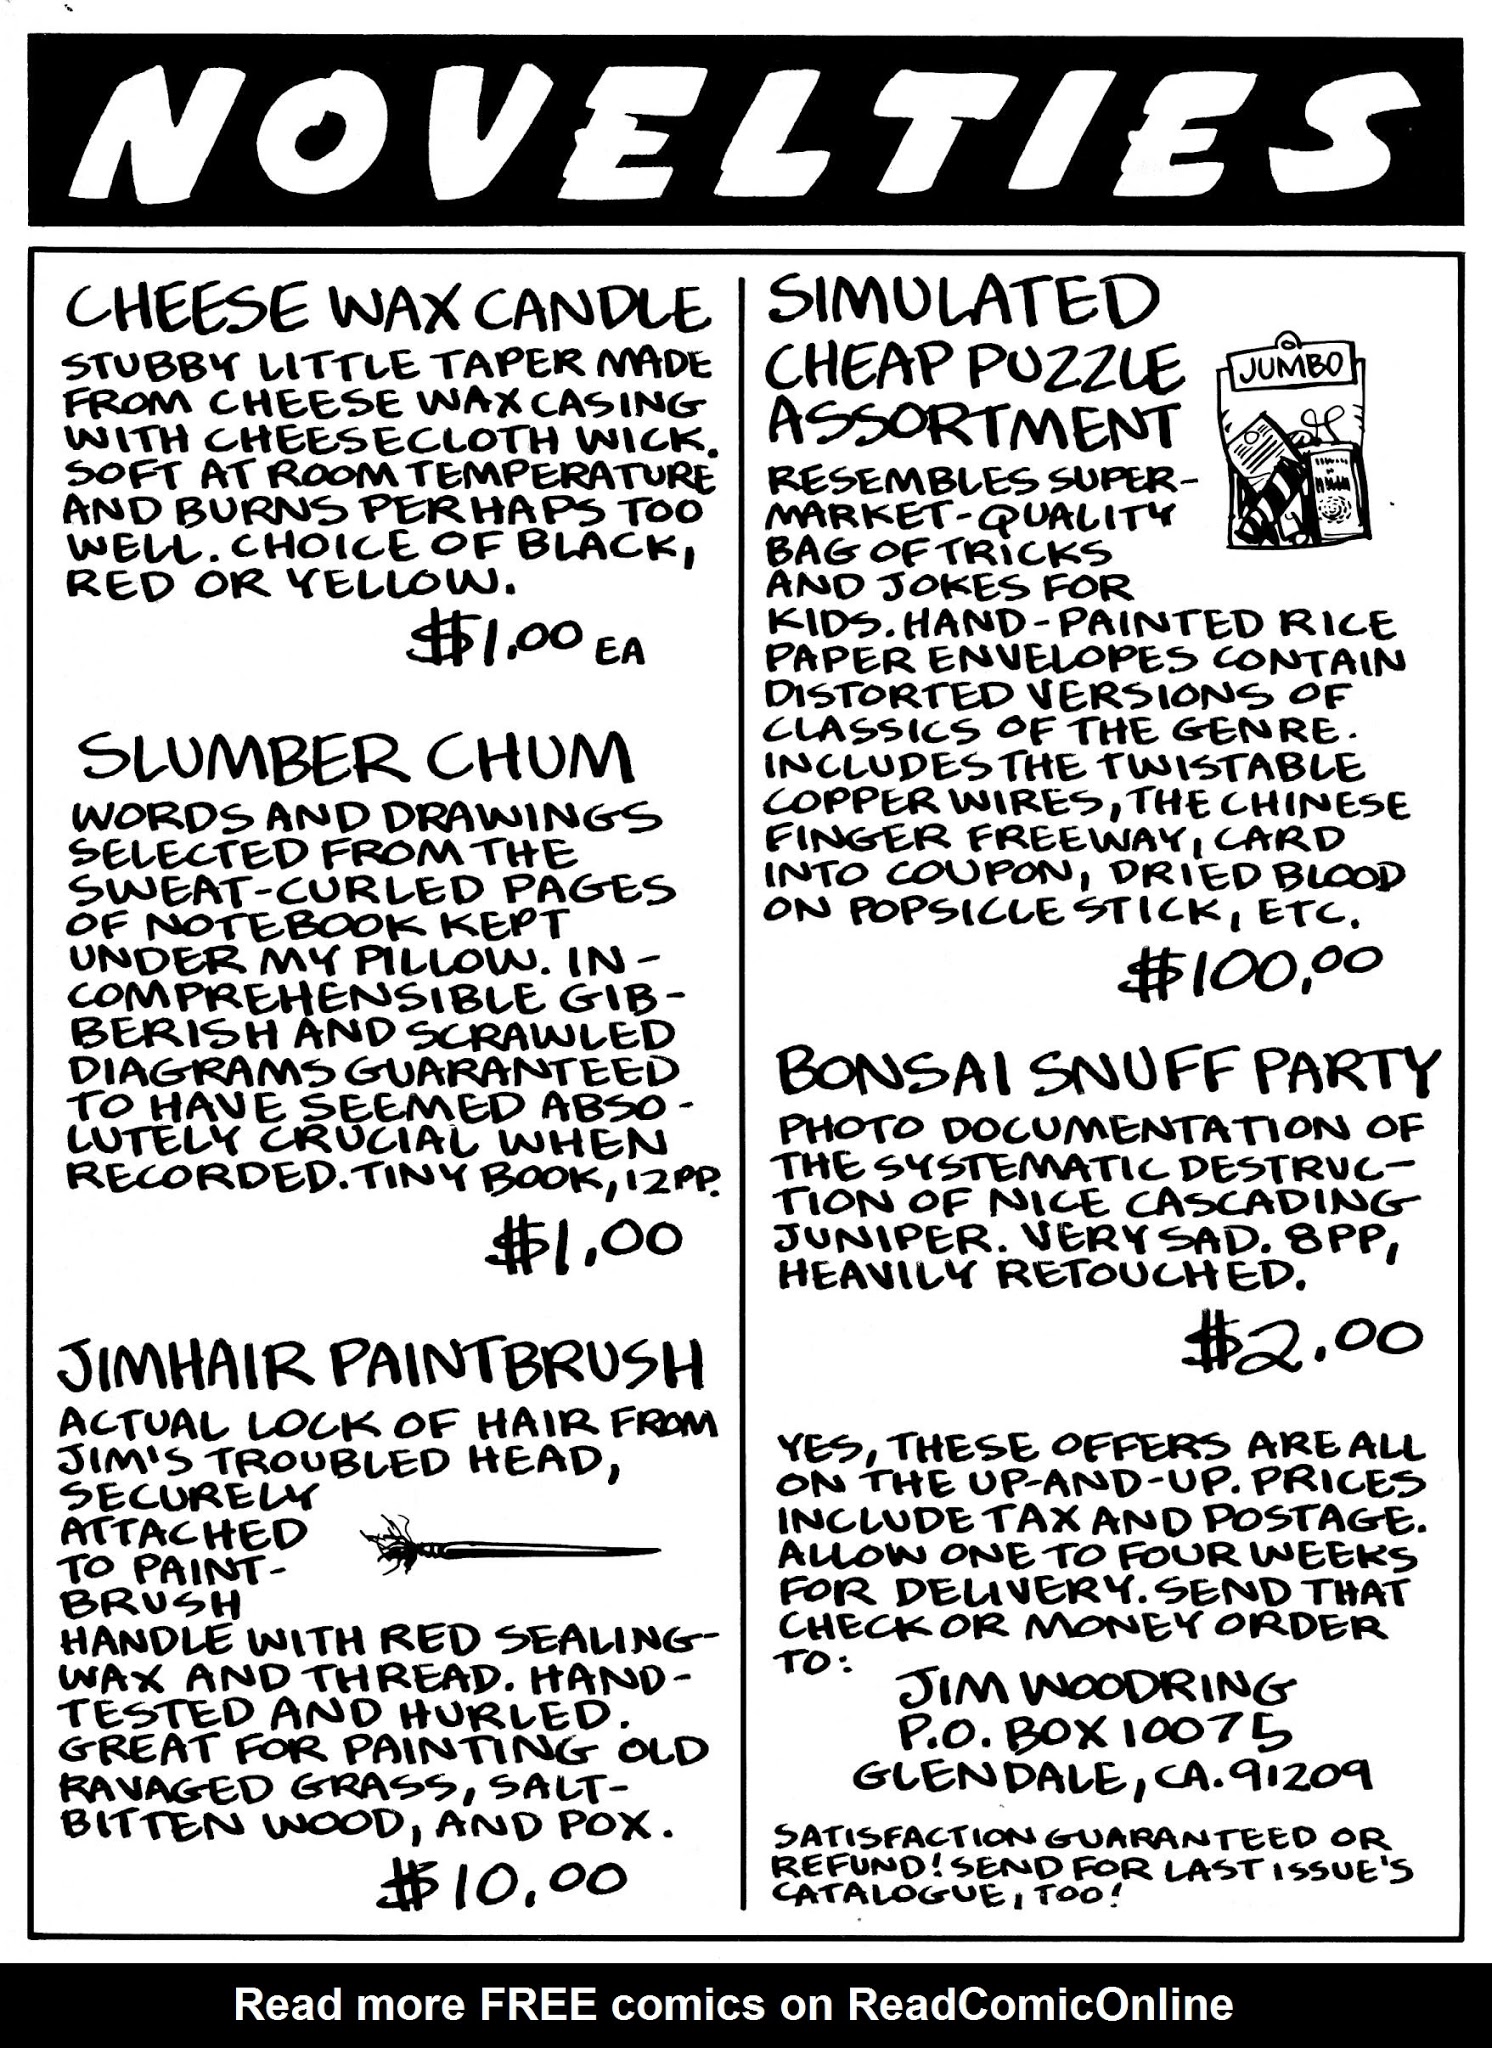 NOVELTIES
CHEESE WAX CANDLE
STUBBY LITTLE TAPER MADE
FROM CHEESE WAX CASING
WITH CHEESECLOTH WICK.
SOFT AT ROOM TEMPERATURE
AND BURNS PERHAPS TOO
WELL. CHOICE OF BLACK,
RED OR YELLOW.
$1.00 EA
SLUMBER CHUM
WORDS AND DRAWINGS
SELECTED FROM THE
SWEAT-CURLED PAGES
OF NOTEBOOK KEPT
UNDER MY PILLOW. IN-
COMPREHENSIBLE GIB-
BERISH AND SCRAWLED
DIAGRAMS GUARANTEED
TO HAVE SEEMED ABSO-
LUTELY CRUCIAL WHEN
RECORDED. TINY BOOK, 12PP.
$1.00
JIMHAIR PAINTBRUSH
ACTUAL LOCK OF HAIR FROM
JIM'S TROUBLED HEAD,
SECURELY
ATTACHED
TO PAINT-
BRUSH
HANDLE WITH RED SEALING-
WAX AND THREAD. HAND-
TESTED AND HURLED.
GREAT FOR PAINTING OLD
RAVAGED GRASS, SALT-
BITTEN WOOD, AND POX.
$10.00
SIMULATED
CHEAP PUZZLE
ASSORTMENT
JUMBO
RESEMBLES SUPER-
MARKET-QUALITY
BAG OF TRICKS
AND JOKES FOR
KIDS. HAND-PAINTED RICE
PAPER ENVELOPES CONTAIN
DISTORTED VERSIONS OF
CLASSICS OF THE GENRE.
INCLUDES THE TWISTABLE
COPPER WIRES, THE CHINESE
FINGER FREEWAY, CARD
INTO COUPON, DRIED BLOOD
ON POPSICLE STICK, ETC.
$100.00
BONSAI SNUFF PARTY
PHOTO DOCUMENTATION OF
THE SYSTEMATIC DESTRUC-
TION OF NICE CASCADING
JUNIPER. VERY SAD. 8PP,
HEAVILY RETOUCHED.
$2.00
YES, THESE OFFERS ARE ALL
ON THE UP-AND-UP. PRICES
INCLUDE TAX AND POSTAGE.
ALLOW ONE TO FOUR WEEKS
FOR DELIVERY. SEND THAT
CHECK OR MONEY ORDER
TO:
JIM WOODRING
P.O. BOX 10075
GLENDALE, CA. 91209
SATISFACTION GUARANTEED OR
REFUND! SEND FOR LAST ISSUE'S
CATALOGUE, TOO!
Read more FREE comics on ReadComicOnline